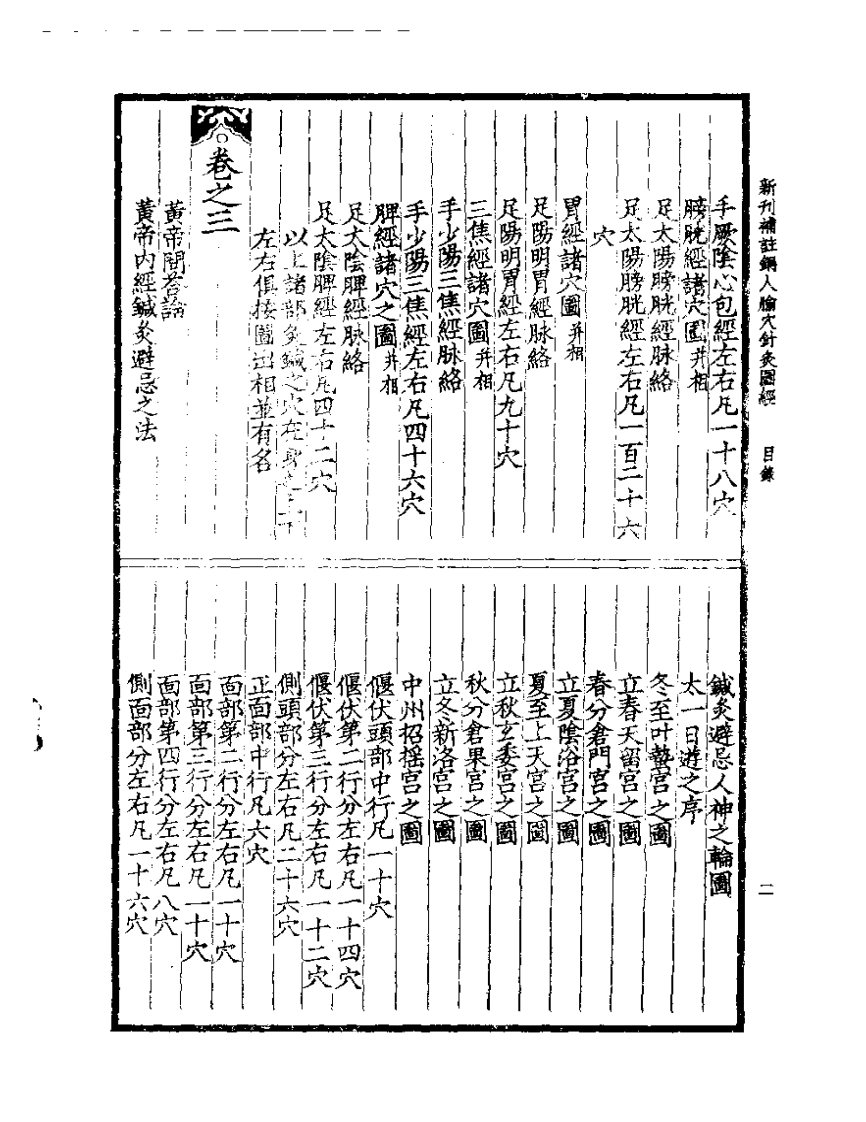 新刊補註銅人腧穴針灸圖經　目錄
手厥陰心包經左右凡一十八穴
膀胱經諸穴圖并相
足太陽膀胱經脉絡
足太陽膀胱經左右凡一百二十六
穴
胃經諸穴圖并相
足陽明胃經脉絡
足陽明胃經左右凡九十穴
三焦經諸穴圖并相
手少陽三焦經脉絡
手少陽三焦經左右凡四十六穴
脾經諸穴之圖并相
足太陰脾經脉絡
足太陰脾經左右凡四十二穴
以上諸部灸鍼之穴在身之
左右俱按圖出相並有名
卷之三
黃帝問答論
黃帝內經鍼灸避忌之法
鍼灸避忌人神之輪圖
太一日遊之序
冬至叶蟄宮之圖
立春天留宮之圖
春分倉門宮之圖
立夏陰洛宮之圖
夏至上天宮之圖
立秋玄委宮之圖
秋分倉果宮之圖
立冬新洛宮之圖
中州招摇宮之圖
偃伏頭部中行凡一十穴
偃伏第二行分左右凡一十四穴
偃伏第三行分左右凡一十二穴
側頭部分左右凡二十六穴
正面部中行凡六穴
面部第二行分左右凡一十穴
面部第三行分左右凡一十穴
面部第四行分左右凡八穴
側面部分左右凡一十六穴
二